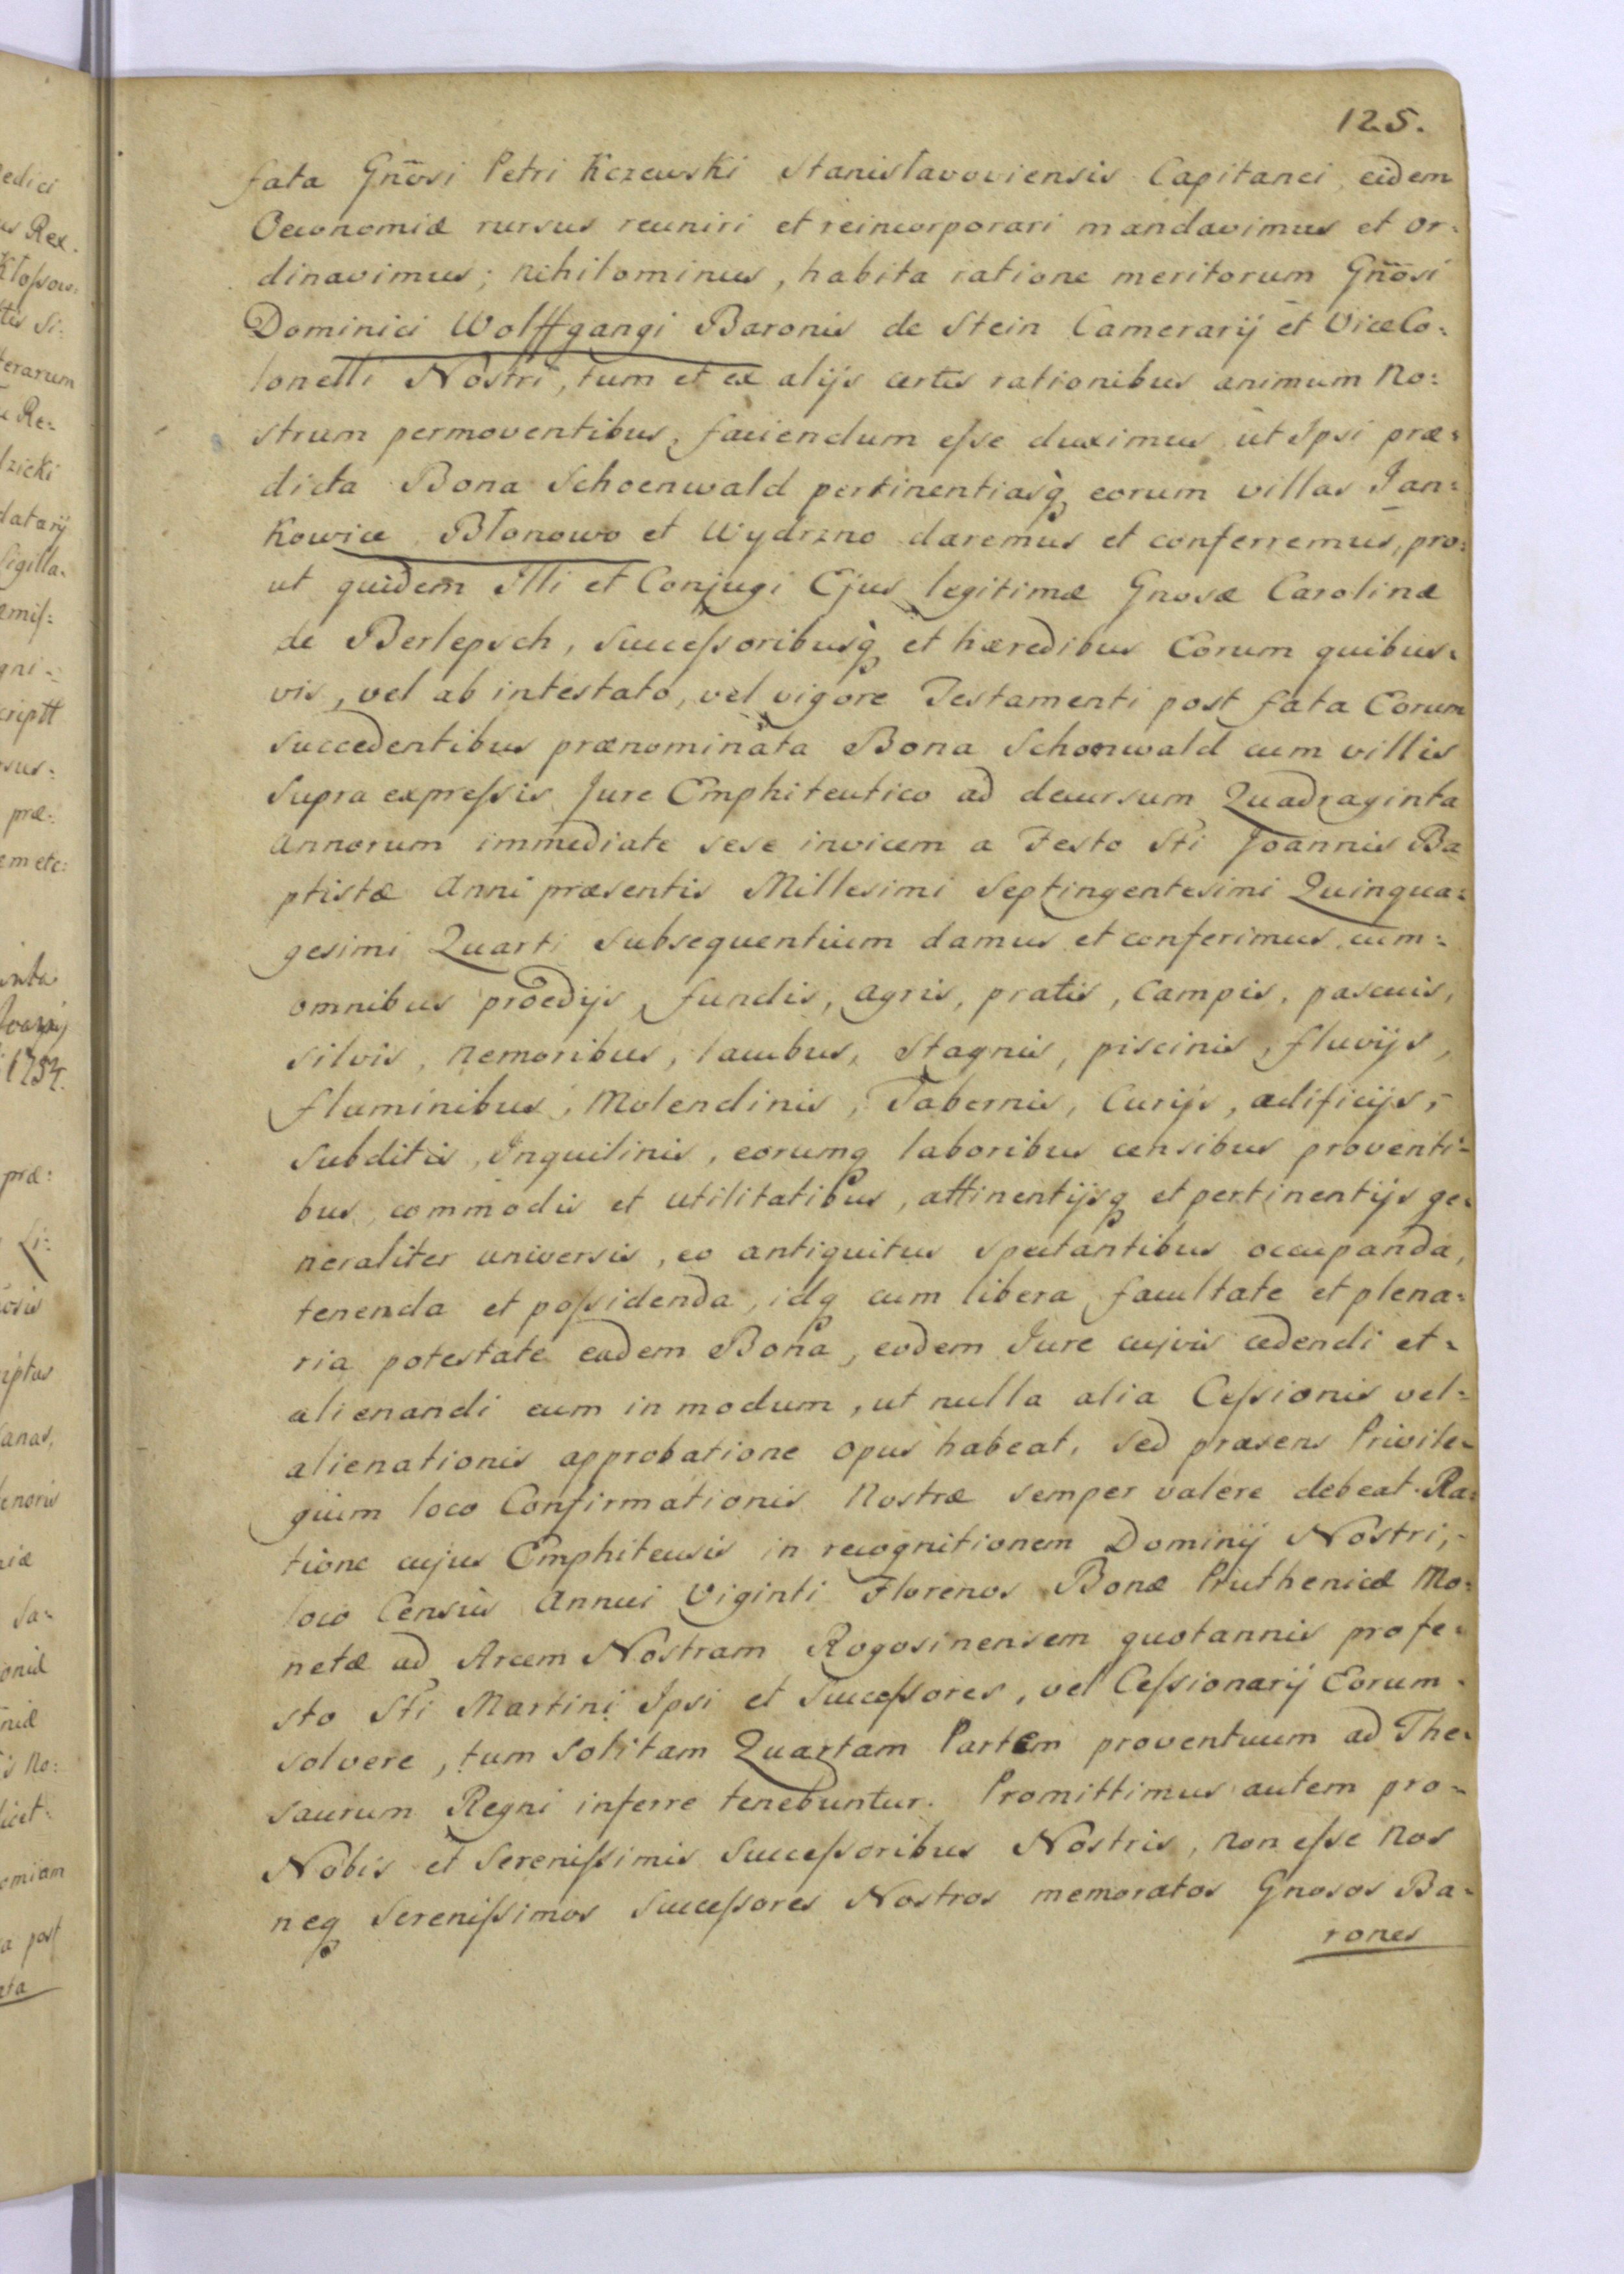 125.
fata Gn̄osi Petri Kczewski Stanisłavoviensis Capitanei, eidem
Oeconomiæ rursus reuniri et reincorporari mandavimus et or=
dinavimus; nihilominus, habita ratione meritorum Gn̄osi
Dominici Wolffgangi Baronis de Stein Camerarij et ViceCo=
lonelli Nostri, tum et ex alijs certis rationibus animum No=
strum permoventibus, faciendum eſse duximus ut Ipsi præ=
dicta Bona Schoenwald pertinentiasq eorum villas Jan=
kowice Błonowo et Wydrzno daremus et conferremus, pro=
ut quidem Illi et Conjugi Ejus legitimæ Gnosæ Carolinæ
de Berlepsch, Succeſsoribusq et hæredibus Eorum quibus=
vis, vel ab intestato, vel vigore Testamenti post fata Eorum
succedentibus prænominata Bona Schonwald cum villis
Supra expreſsis Jure Emphiteutico ad decursum Quadraginta
Annorum immediate sese invicem a Festo Sti Joannis Ba
ptistæ Anni præsentis Millesimi Septingentesimi Quinqua=
gesimi Quarti subsequentium damus et conferimus cum=
omnibus prœdijs, fundis, agris, pratis, Campis, pascuis,
silvis, nemoribus, lacubus, Stagnis, piscinis, fluvijs,
fluminibus, Molendinis, Tabernis, Curijs, ædificijs,=
Subditis, Inquilinis, eorumq laboribus censibus proventi=
bus, commodis et utilitatibus, attinentijsq et pertinentijs ge=
neraliter universis, eo antiquitus spectantibus occupanda,
tenenda et poſsidenda, idq cum libera facultate et plena=
ria potestate eadem Bona, eodem Jure cujvis cedendi et=
alienandi eum in modum, ut nulla alia Ceſsionis vel=
alienationis approbatione opus habeat, sed præsens Privile=
gium loco Confirmationis Nostræ semper valere debeat. Ra=
tione cujus Emphiteusis in recognitionem Dominij Nostri,=
loco Censûs Annui Viginti Florenos Bonæ Pruthenicæ Mo=
netæ ad Arcem Nostram Rogosinensem quotannis pro fe=
sto Sti Martini Ipsi et Succeſsores, vel Ceſsionarij Eorum=
solvere, tum solitam Quartam Partem proventuum ad The=
saurum Regni inferre tenebuntur. Promittimus autem pro=
Nobis et Sereniſsimis Succeſsoribus Nostris, non eſse Nos
neq Sereniſsimos Succeſsores Nostros memoratos Gnosos Ba=
rones